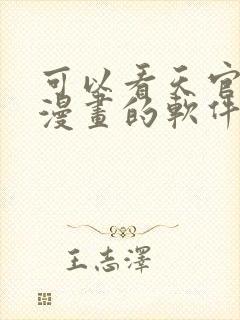 可以看天官
漫畫的軟件
王志澤